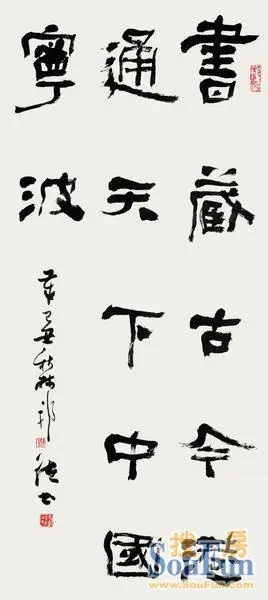 書藏古今港
通天下中國
寧波
己丑秋林邦德书
搜房
SouFun
www.SouFun.com